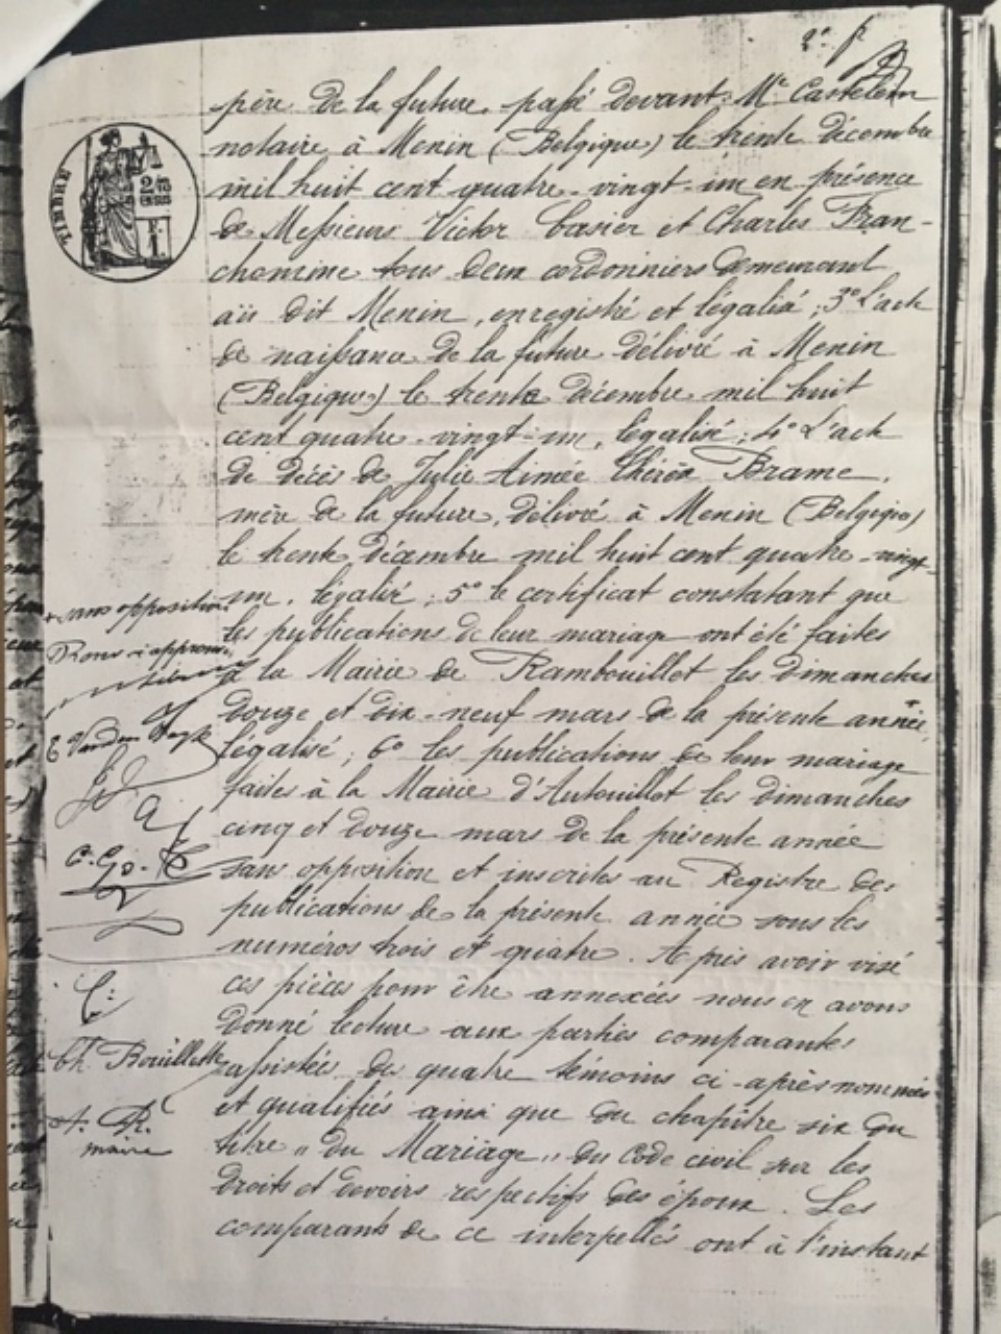 2e f
père de la future, passé devant Me Castelein
notaire à Menin (Belgique) le trente décembre
mil huit cent quatre-vingt-un en présence
de Messieurs Victor Casier et Charles Fran-
chomme tous deux cordonniers demeurant
au dit Menin, enregistré et légalisé; 3° L'acte
de naissance de la future délivré à Menin
(Belgique) le trente décembre mil huit
cent quatre-vingt-un, légalisé; 4° L'acte
de décès de Julie Aimée Thérèse Brame,
mère de la future, délivré à Menin (Belgique)
le trente décembre mil huit cent quatre-vingt-
un, légalisé; 5° le certificat constatant que
les publications de leur mariage ont été faites
à la Mairie de Rambouillet les dimanches
douze et dix-neuf mars de la présente année,
légalisé; 6° les publications de leur mariage
faites à la Mairie d'Autouillet les dimanches
cinq et douze mars de la présente année
sans opposition et inscrites au Registre des
publications de la présente année sous les
numéros trois et quatre. Après avoir visé
ces pièces pour être annexées nous en avons
donné lecture aux parties comparantes
assistées des quatre témoins ci-après nommés
et qualifiés ainsi que du chapitre six du
titre "du Mariage" du Code civil sur les
droits et devoirs respectifs des époux. Les
comparants de ce interpellés ont à l'instant
TIMBRE
2/10
+ sans opposition
E Vanden
C. Go.
C:
Ch. Bouillette
A. R.
maire